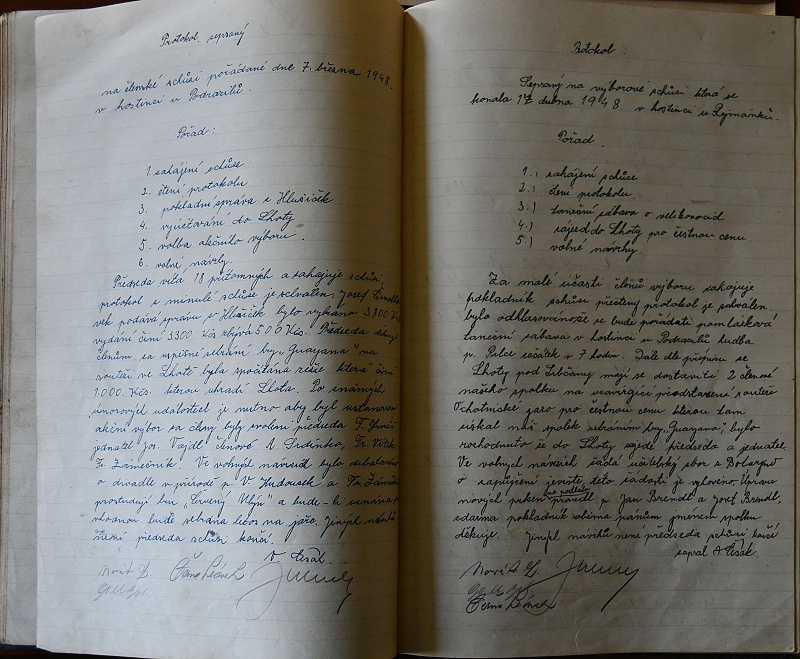 Protokol sepsaný
na členské schůzi pořádané dne 7. března 1948.
v hostinci u Podrazilů.
Pořad:
1. zahájení schůze
2. čtení protokolu
3. pokladní zpráva z Hlušiček
4. vyúčtování do Lhoty
5. volba akčního výboru.
6. volné návrhy.
Předseda vítá 18 přítomných a zahajuje schůzi,
protokol z minulé schůze je schválen, Josef
podává zprávu z Hlušiček bylo vybráno 3.800 Kčs
vydání činí 3300 Kčs zbývá 500 Kčs. Předseda děkuje
členům za úspěšné sehrání hry "Guayana" na
soutěži ve Lhotě byla spočítána režie která činí
1000 Kčs. kterou uhradí Lhota. Po známých
únorových událostech je nutno aby byl ustanoven
akční výbor za členy byli zvoleni předseda F.
jednatel jos. Vejdl členové A Srdínko, Fr. Vítek
Fr. Zámečník. Ve volných návrzích bylo debatováno
o divadle v přírodě p. V. Hudousek a Fr.
prostudují hru "Červený Mlýn" a bude-li uznána
vhodnou bude sehrána letos na jaře. Jiných návrhů
není předseda schůzi končí.
A. Cisař.
Novák L.
Protokol.
Sepsaný na výborové schůzi která se
konala 17. dubna 1948 v hostinci u Rejmánků.
Pořad.
1.) zahájení schůze
2.) čtení protokolu.
3.) taneční zábava o velikonocích
4.) zájezd do Lhoty pro čestnou cenu
5.) volné návrhy
Za malé účasti členů výboru zahajuje
pokladník schůzi přečtený protokol je schválen
bylo odhlasováno že se bude pořádati pomlázková
taneční zábava v hostinci u Podrazilů hudba
p. Pulce začátek v 7 hodin. Dále dle přípisu ze
Lhoty pod Libčany mají se dostaviti 2 členové
našeho spolku na uzavírající představení soutěže
Ochotnické jaro pro čestnou cenu kterou tam
získal náš spolek sehráním hry "Guayana", bylo
rozhodnuto že do Lhoty zajede předseda a jednatel.
Ve volných návrzích žádá učitelský sbor z
o zapůjčení jeviště, této žádosti je vyhověno. Úpravu
nových prken na podlahu provedl p Jan Brendl a Josf Brendl,
zdarma pokladník oběma pánům jménem spolku
děkuje. Jiných návrhů není předseda schůzi končí
zapsal A. Cisař.
Novák L.